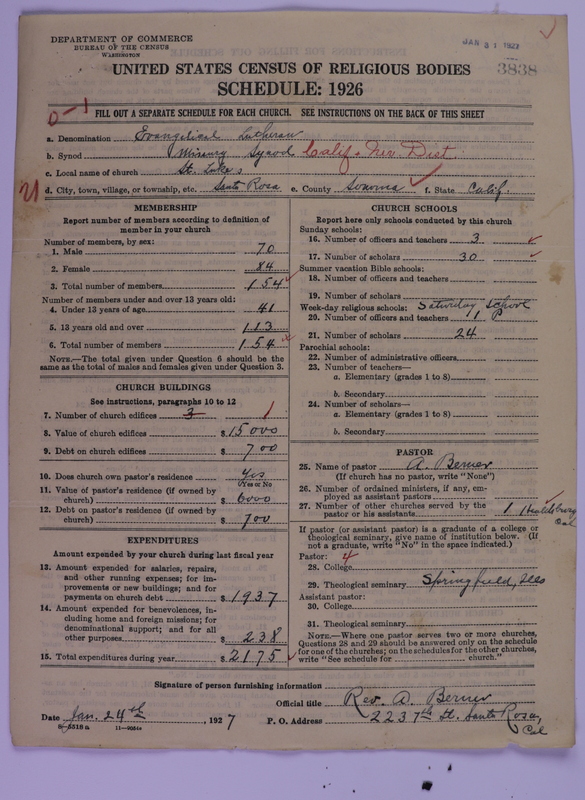 DEPARTMENT OF COMMERCE
BUREAU OF THE CENSUS
WASHINGTON
JAN 31 1927
3838
UNITED STATES CENSUS OF RELIGIOUS BODIES
SCHEDULE: 1926
0-1
FILL OUT A SEPARATE SCHEDULE FOR EACH CHURCH. SEE INSTRUCTIONS ON THE BACK OF THIS SHEET
a. Denomination Evangelical Lutheran
b. Synod Missury Synod Calif + Nev Dist.
c. Local name of church St. Luke's
d. City, town, village, or township, etc. Santa Rosa e. County Sonoma f. State Calif.
MEMBERSHIP
Report number of members according to definition of member in your church
Number of members, by sex:
1. Male 70
2. Female 84
3. Total number of members 154
Number of members under and over 13 years old:
4. Under 13 years of age 41
5. 13 years old and over 113
6. Total number of members 154
NOTE.—The total given under Question 6 should be the same as the total of males and females given under Question 3.
CHURCH BUILDINGS
See instructions, paragraphs 10 to 12
7. Number of church edifices 3 1
8. Value of church edifices $15000
9. Debt on church edifices $700
10. Does church own pastor's residence? Yes
Yes or No
11. Value of pastor's residence (if owned by church) $6000
12. Debt on pastor's residence (if owned by church) $700
EXPENDITURES
Amount expended by your church during last fiscal year
13. Amount expended for salaries, repairs, and other running expenses; for improvements or new buildings; and for payments on church debt $1937
14. Amount expended for benevolences, including home and foreign missions; for denominational support; and for all other purposes $238
15. Total expenditures during year $2175
CHURCH SCHOOLS
Report here only schools conducted by this church
Sunday schools:
16. Number of officers and teachers 3
17. Number of scholars 30
Summer vacation Bible schools:
18. Number of officers and teachers
19. Number of scholars
Week-day religious schools: Saturday School
20. Number of officers and teachers 1 P
21. Number of scholars 24
Parochial schools:
22. Number of administrative officers
23. Number of teachers—
a. Elementary (grades 1 to 8)
b. Secondary
24. Number of scholars—
a. Elementary (grades 1 to 8)
b. Secondary
PASTOR
25. Name of pastor A. Berner
(If church has no pastor, write "None")
26. Number of ordained ministers, if any, employed as assistant pastors
27. Number of other churches served by the pastor or his assistants 1 Healdsburg Cal
If pastor (or assistant pastor) is a graduate of a college or theological seminary, give name of institution below. (If not a graduate, write "No" in the space indicated.)
Pastor: 4
28. College
29. Theological seminary Springfield, Ills
Assistant pastor:
30. College
31. Theological seminary
NOTE.—Where one pastor serves two or more churches, Questions 28 and 29 should be answered only on the schedule for one of the churches; on the schedules for the other churches, write "See schedule for church."
Signature of person furnishing information
Official title Rev. A. Berner
Date Jan. 24th, 1927 P. O. Address 223 7th St. Santa Rosa, Cal
8-5518a